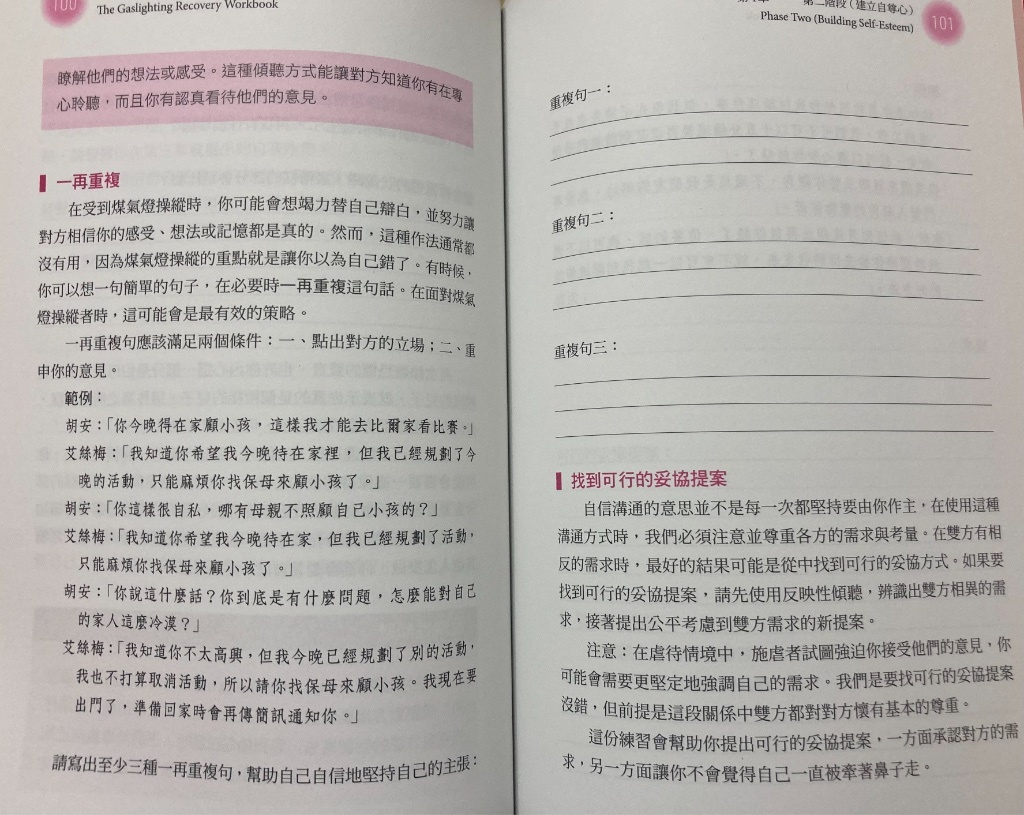 100
The Gaslighting Recovery Workbook
瞭解他們的想法或感受。這種傾聽方式能讓對方知道你有在專
心聆聽，而且你有認真看待他們的意見。
一再重複
在受到煤氣燈操縱時，你可能會想竭力替自己辯白，並努力讓
對方相信你的感受、想法或記憶都是真的。然而，這種作法通常都
沒有用，因為煤氣燈操縱的重點就是讓你以為自己錯了。有時候，
你可以想一句簡單的句子，在必要時一再重複這句話。在面對煤氣
燈操縱者時，這可能會是最有效的策略。
一再重複句應該滿足兩個條件：一、點出對方的立場；二、重
申你的意見。
範例：
胡安：「你今晚得在家顧小孩，這樣我才能去比爾家看比賽。」
艾絲梅：「我知道你希望我今晚待在家裡，但我已經規劃了今
晚的活動，只能麻煩你找保母來顧小孩了。」
胡安：「你這樣很自私，哪有母親不照顧自己小孩的？」
艾絲梅：「我知道你希望我今晚待在家，但我已經規劃了活動，
只能麻煩你找保母來顧小孩了。」
胡安：「你說這什麼話？你到底是有什麼問題，怎麼能對自己
的家人這麼冷漠？」
艾絲梅：「我知道你不太高興，但我今晚已經規劃了別的活動，
我也不打算取消活動，所以請你找保母來顧小孩。我現在要
出門了，準備回家時會再傳簡訊通知你。」
請寫出至少三種一再重複句，幫助自己自信地堅持自己的主張：
第二階段（建立自尊心）
Phase Two (Building Self-Esteem)
101
重複句一：
重複句二：
重複句三：
找到可行的妥協提案
自信溝通的意思並不是每一次都堅持要由你作主，在使用這種
溝通方式時，我們必須注意並尊重各方的需求與考量。在雙方有相
反的需求時，最好的結果可能是從中找到可行的妥協方式。如果要
找到可行的妥協提案，請先使用反映性傾聽，辨識出雙方相異的需
求，接著提出公平考慮到雙方需求的新提案。
注意：在虐待情境中，施虐者試圖強迫你接受他們的意見，你
可能會需要更堅定地強調自己的需求。我們是要找可行的妥協提案
沒錯，但前提是這段關係中雙方都對對方懷有基本的尊重。
這份練習會幫助你提出可行的妥協提案，一方面承認對方的需
求，另一方面讓你不會覺得自己一直被牽著鼻子走。